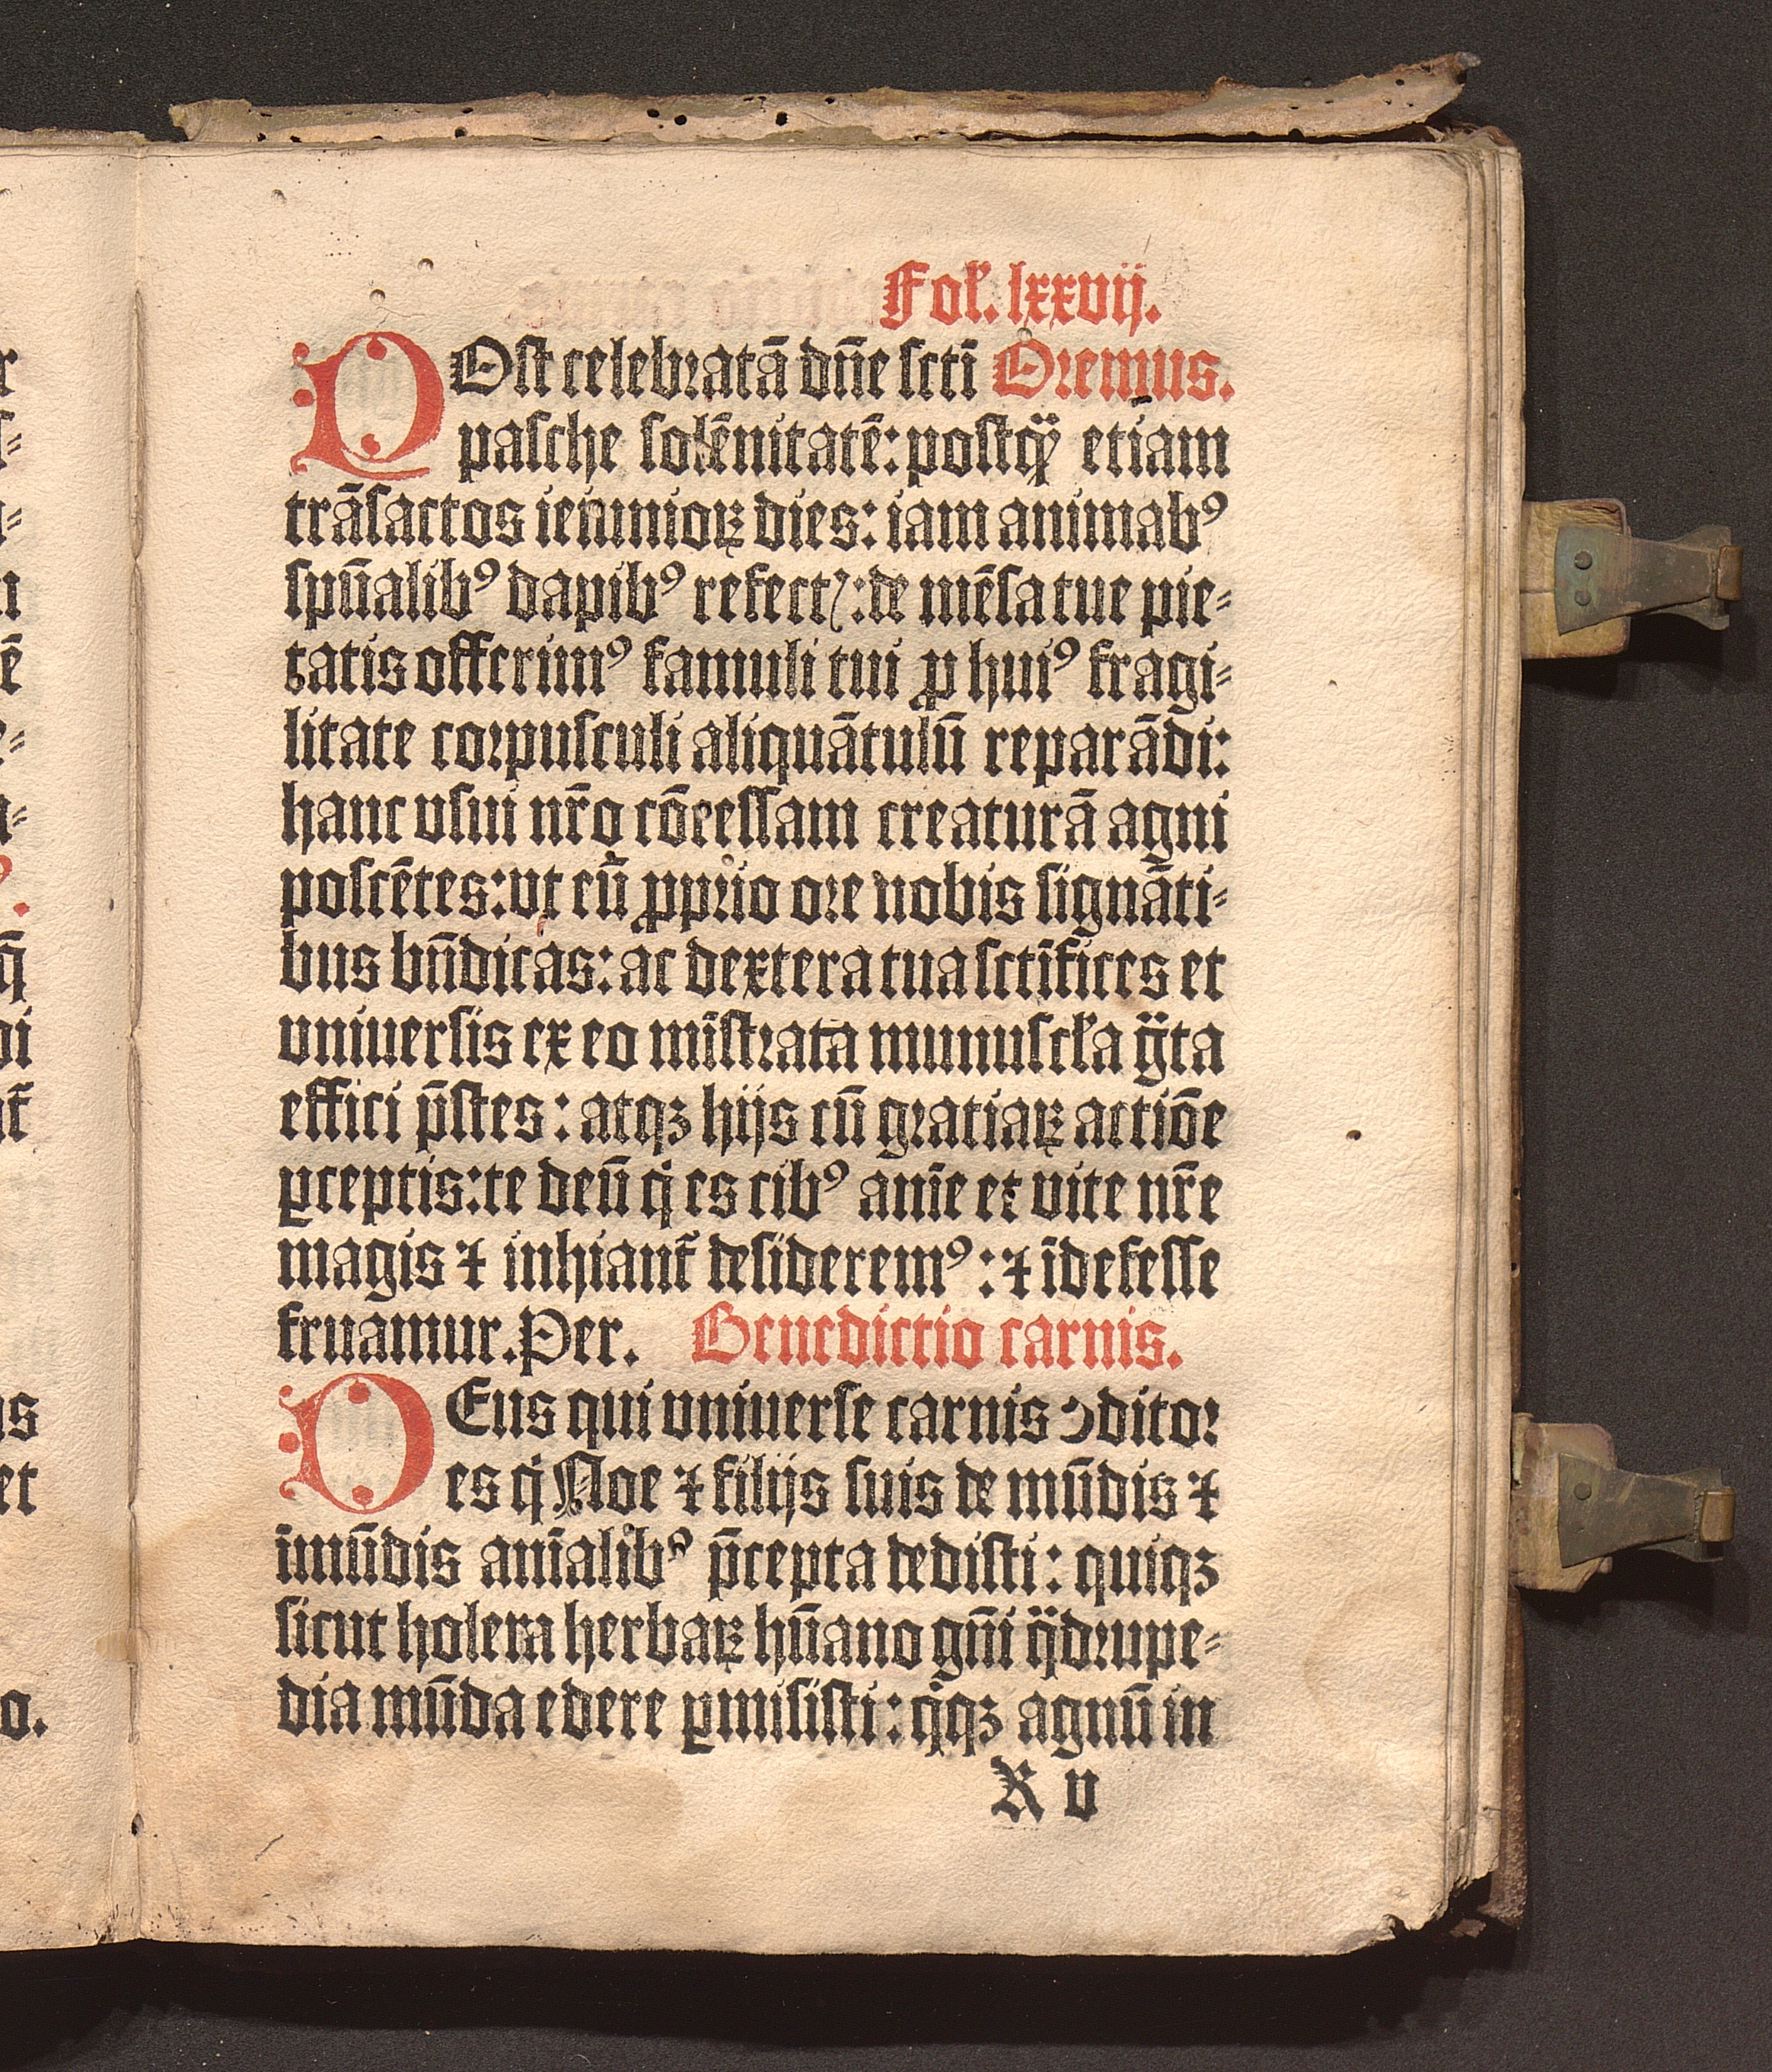 Fol. lxxvij.
POst celebꝛatā dn̄e sctī Oꝛemus.
pasche solēnitatē: postqͣꝫ etiam
trāsactos ieiunioꝝ dies: iam animabꝰ
spūalibꝰ dapibꝰ refectꝭ: de mēsa tue pie⸗
tatis offerimꝰ famuli tui ꝓ huiꝰ fragi⸗
litate coꝛpusculi aliquātulū reparādi:
hanc vsui nr̄o cōcessam creaturā agni
poscētes: vt eū ꝓpꝛio oꝛe nobis signāti⸗
bus bn̄dicas: ac dextera tua sctīfices et
vniuersis ex eo mīstꝛata munuscl̓a gͣta
effici p̄stes: atqꝫ hijs cū gꝛatiaꝝ actiōe
ꝑceptis: te deū qͥ es cibꝰ anīe et vite nr̄e
magis ⁊ inhiant̄ desideremꝰ: ⁊ īdefesse
fruamur. Per. Benedictio carnis.
DEus qui vniuerse carnis ↄditoꝛ
es qͥ Noe ⁊ filijs suis de mūdis ⁊
īmūdis anīalibꝰ p̄cepta dedisti: quiqꝫ
sicut holera herbaꝝ hūano gn̄i qͣdꝛupe⸗
dia mūda edere ꝑmisisti: qͥqꝫ agnū in
R v